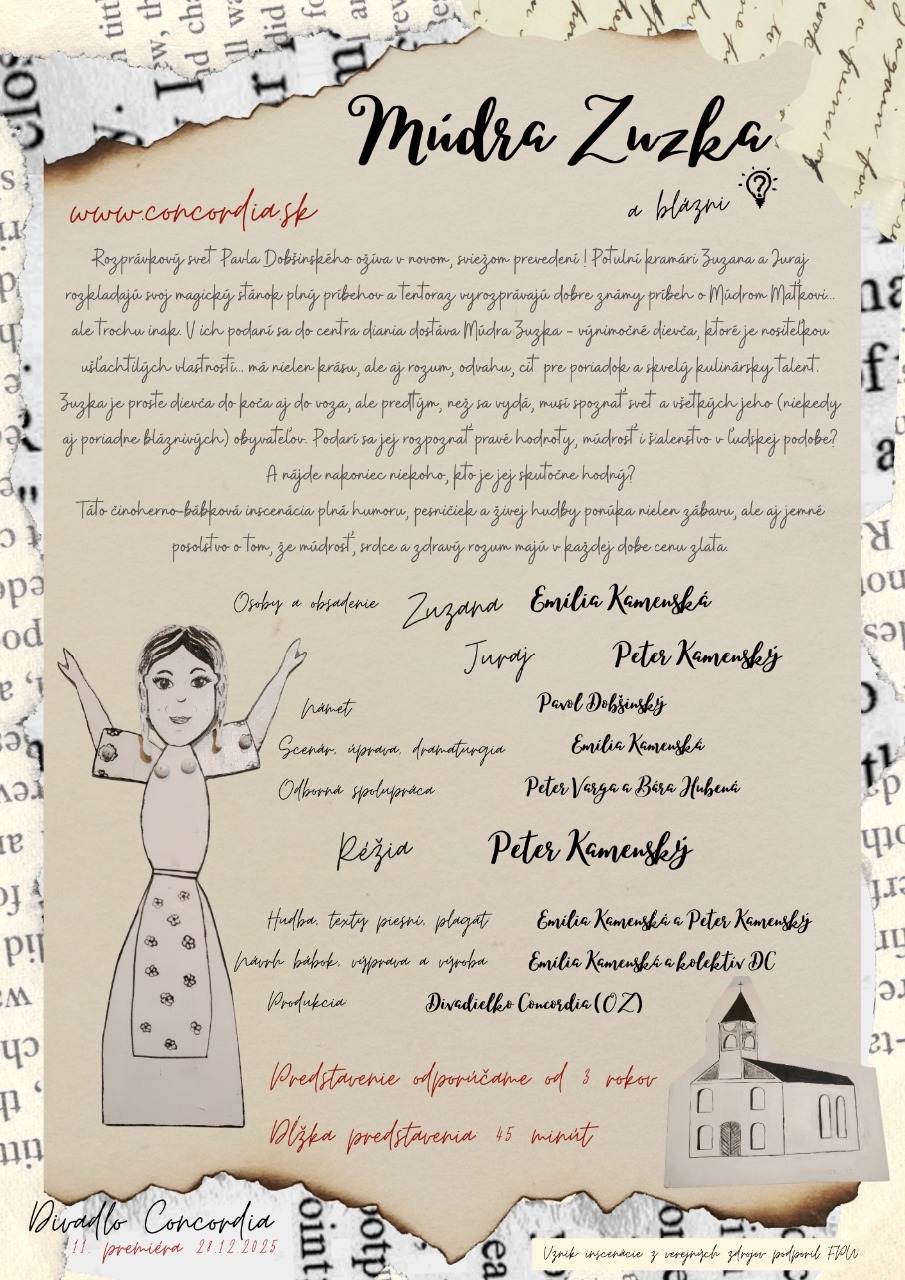 Múdra Zuzka
a blázni
www.concordia.sk
Rozprávkový svet Pavla Dobšinského ožíva v novom, sviežom prevedení ! Potulní kramári Zuzana a Juraj
rozkladajú svoj magický stánok plný príbehov a tentoraz vyrozprávajú dobre známy príbeh o Múdrom Maťkovi...
ale trochu inak. V ich podaní sa do centra diania dostáva Múdra Zuzka - výnimočné dievča, ktoré je nositeľkou
ušľachtilých vlastností... má nielen krásu, ale aj rozum, odvahu, cit pre poriadok a skvelý kulinársky talent.
Zuzka je proste dievča do koča aj do voza, ale predtým, než sa vydá, musí spoznať svet a všetkých jeho (niekedy
aj poriadne bláznivých) obyvateľov. Podarí sa jej rozpoznať pravé hodnoty, múdrosť i šialenstvo v ľudskej podobe?
A nájde nakoniec niekoho, kto je jej skutočne hodný?
Táto činoherno-bábková inscenácia plná humoru, pesničiek a živej hudby ponúka nielen zábavu, ale aj jemné
posolstvo o tom, že múdrosť, srdce a zdravý rozum majú v každej dobe cenu zlata.
Osoby a obsadenie Zuzana Emília Kamenská
Juraj Peter Kamenský
Námet Pavol Dobšinský
Scenár, úprava, dramaturgia Emília Kamenská
Odborná spolupráca Peter Varga a Bára Hubená
Réžia Peter Kamenský
Hudba, texty piesní, plagát Emília Kamenská a Peter Kamenský
Návrh bábok, výprava a výroba Emília Kamenská a kolektív DC
Produkcia Divadielko Concordia (OZ)
Predstavenie odporúčame od 3 rokov
Dĺžka predstavenia 45 minút
Divadlo Concordia
11. premiéra 28.12.2025
Vznik inscenácie z verejných zdrojov podporil FPU